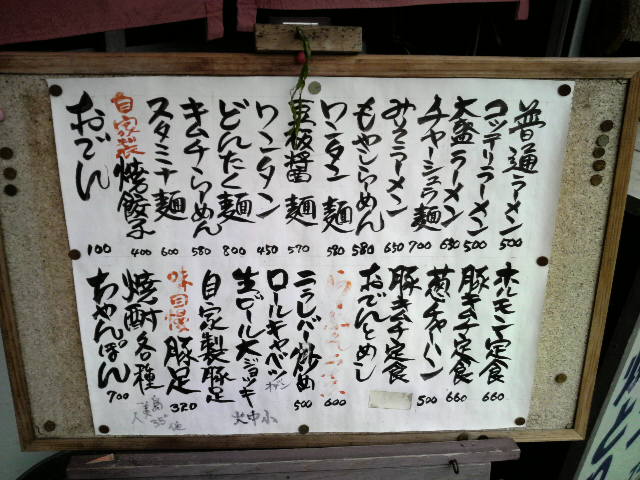 普通ラーメン 500
コッテリラーメン 500
大盛ラーメン 630
チャーシュー麺 700
みそラーメン 650
もやしらーめん 580
ワンタン麺 580
豆板醤麺 570
ワンタン 450
どんたく麺 800
キムチらーめん 580
スタミナ麺 600
自家製焼餃子 400
おでん 100
ホルモン定食 660
豚キムチ定食 660
葱チャーハン 500
豚キムチ定食
おでんとめし
600
ニラレバー炒め 500
ロールキャベツ
生ビール大ジョッキ
大中小
自家製豚足
味自慢豚足 320
焼酎各種
ちゃんぽん 700